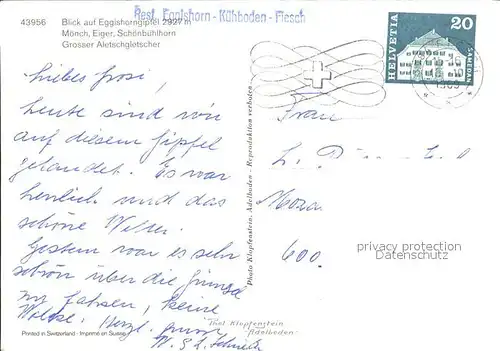 43956 Blick auf Eggishorngipfel 2927 m
Mönch, Eiger, Schönbühlhorn
Grosser Aletschgletscher
Rest. Eggishorn-Kühboden-Fiesch
HELVETIA 20
SAMEDAN
Liebes Grosi,
Heute sind wir
auf diesem Gipfel
gelandet. Es war
herrlich und das
schöne Wetter.
Gestern war es sehr
schön über die
zu fahren, keine
Wolke. Herzl.
W. & L.
Photo Klopfenstein, Adelboden - Reproduktion verboten
Frau
L.
600
privacy protection
Datenschutz
Thol Klopfenstein
Adelboden
Printed in Switzerland - Imprimé en Suisse